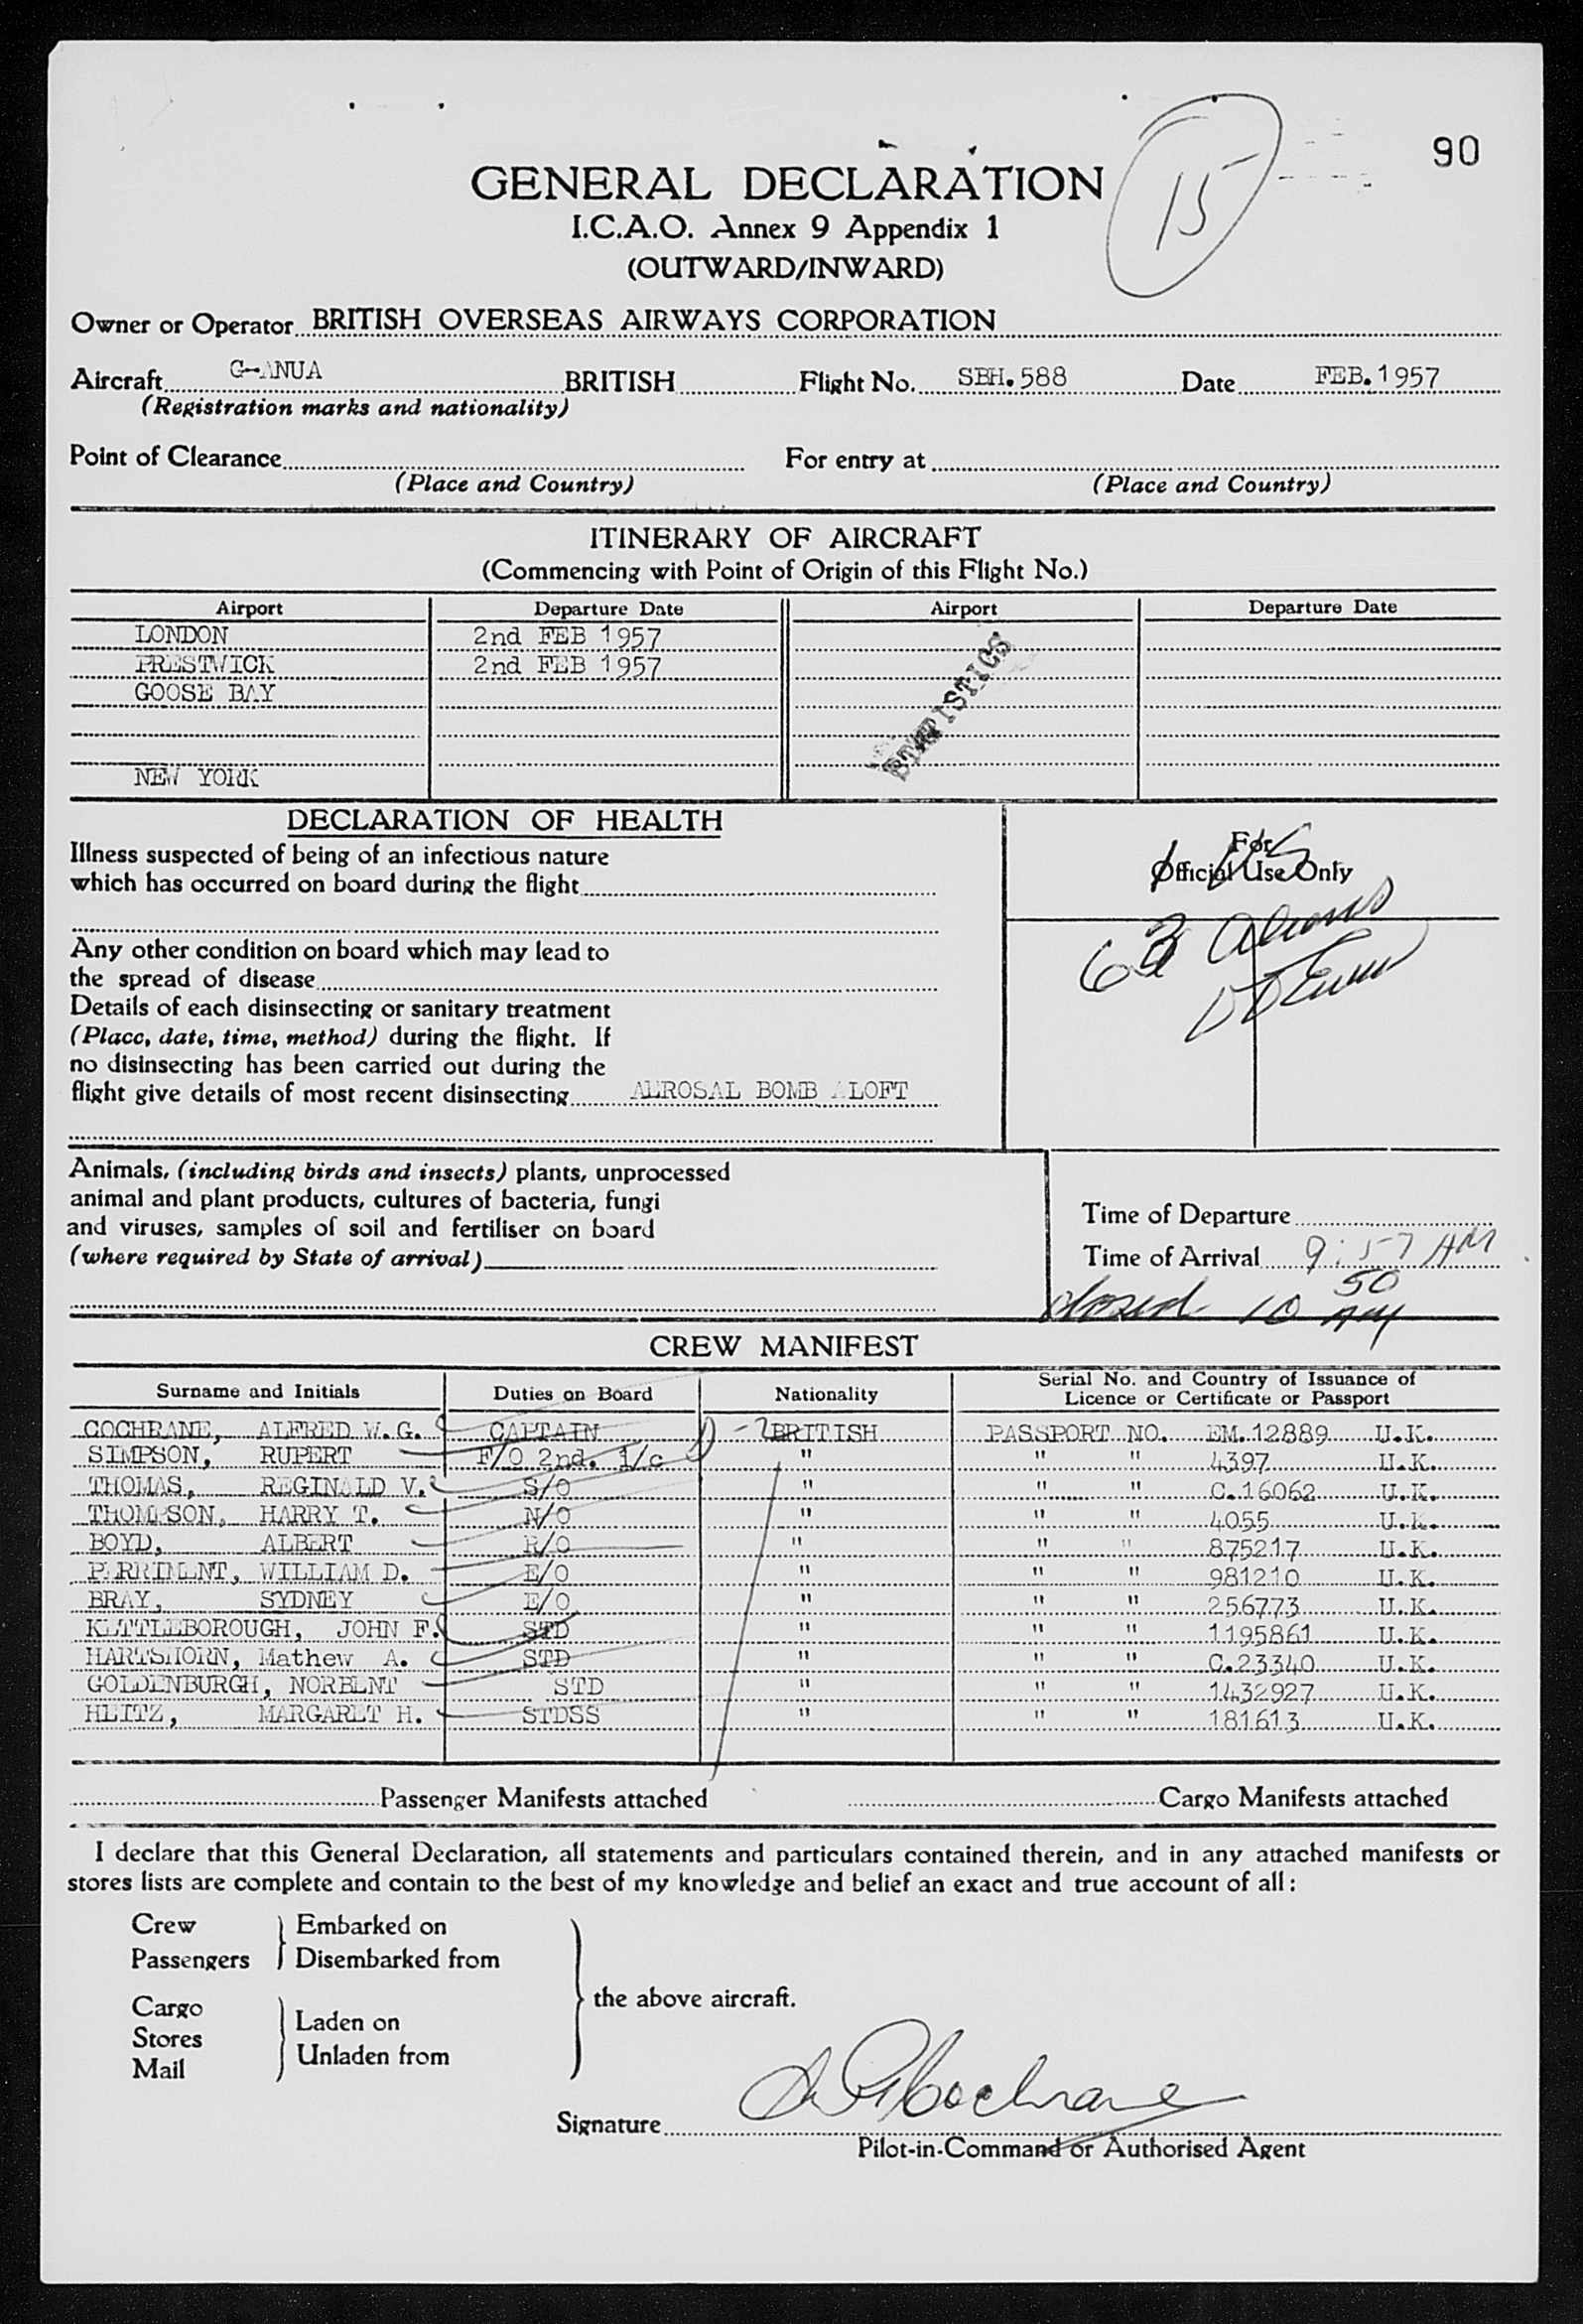 90
15
GENERAL DECLARATION
I.C.A.O. Annex 9 Appendix 1
(OUTWARD/INWARD)
Owner or Operator BRITISH OVERSEAS AIRWAYS CORPORATION
Aircraft G-ANUA BRITISH Flight No. SBH.588 Date FEB.1957
(Registration marks and nationality)
Point of Clearance For entry at
(Place and Country) (Place and Country)
ITINERARY OF AIRCRAFT
(Commencing with Point of Origin of this Flight No.)
Airport Departure Date Airport Departure Date
LONDON 2nd FEB 1957
PRESTWICK 2nd FEB 1957
GOOSE BAY
STATISTICS
NEW YORK
DECLARATION OF HEALTH
For
Official Use Only
Illness suspected of being of an infectious nature
which has occurred on board during the flight
63 Aliens
Any other condition on board which may lead to
the spread of disease
Details of each disinsecting or sanitary treatment
(Place, date, time, method) during the flight. If
no disinsecting has been carried out during the
flight give details of most recent disinsecting AEROSAL BOMB ALOFT
Animals, (including birds and insects) plants, unprocessed
animal and plant products, cultures of bacteria, fungi
and viruses, samples of soil and fertiliser on board
(where required by State of arrival)
Time of Departure
Time of Arrival 9:57 AM
closed 10 50 AM
CREW MANIFEST
Surname and Initials Duties on Board Nationality Serial No. and Country of Issuance of Licence or Certificate or Passport
COCHRANE, ALFRED W.G. CAPTAIN BRITISH PASSPORT NO. EM.12889 U.K.
SIMPSON, RUPERT F/O 2nd. i/c " " " 4397 U.K.
THOMAS, REGINALD V. S/O " " " C.16062 U.K.
THOMPSON, HARRY T. N/O " " " 4055 U.K.
BOYD, ALBERT R/O " " " 875217 U.K.
PERRIMENT, WILLIAM D. E/O " " " 981210 U.K.
BRAY, SYDNEY E/O " " " 256773 U.K.
KETTLEBOROUGH, JOHN F. STD " " " 1195861 U.K.
HARTSHORN, Mathew A. STD " " " C.23340 U.K.
GOLDENBURGH, NORBENT STD " " " 1432927 U.K.
HEITZ, MARGARET H. STDSS " " " 181613 U.K.
Passenger Manifests attached Cargo Manifests attached
I declare that this General Declaration, all statements and particulars contained therein, and in any attached manifests or
stores lists are complete and contain to the best of my knowledge and belief an exact and true account of all:
Crew Embarked on
Passengers Disembarked from
the above aircraft.
Cargo
Stores Laden on
Mail Unladen from
Signature AWGCochrane
Pilot-in-Command or Authorised Agent